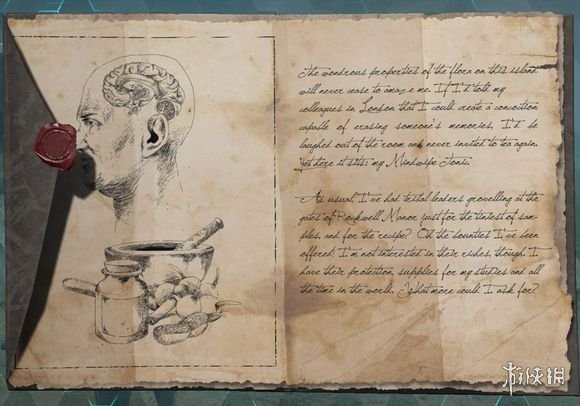 The wondrous properties of the flora on this island
will never cease to amaze me. If I'd told my
colleagues in London that I could create a concoction
capable of erasing someone's memories, I'd be
laughed out of the room and never invited to tea again.
Yet here it sits: my Mindwipe Tonic.
As usual, I've had tribal leaders grovelling at the
gates of Rockwell Manor just for the tiniest of sam-
ples, and for the recipe? Oh the bounties I've seen
offered! I'm not interested in their riches, though. I
have their protection, supplies for my studies and all
the time in the world. What more could I ask for?
游侠网